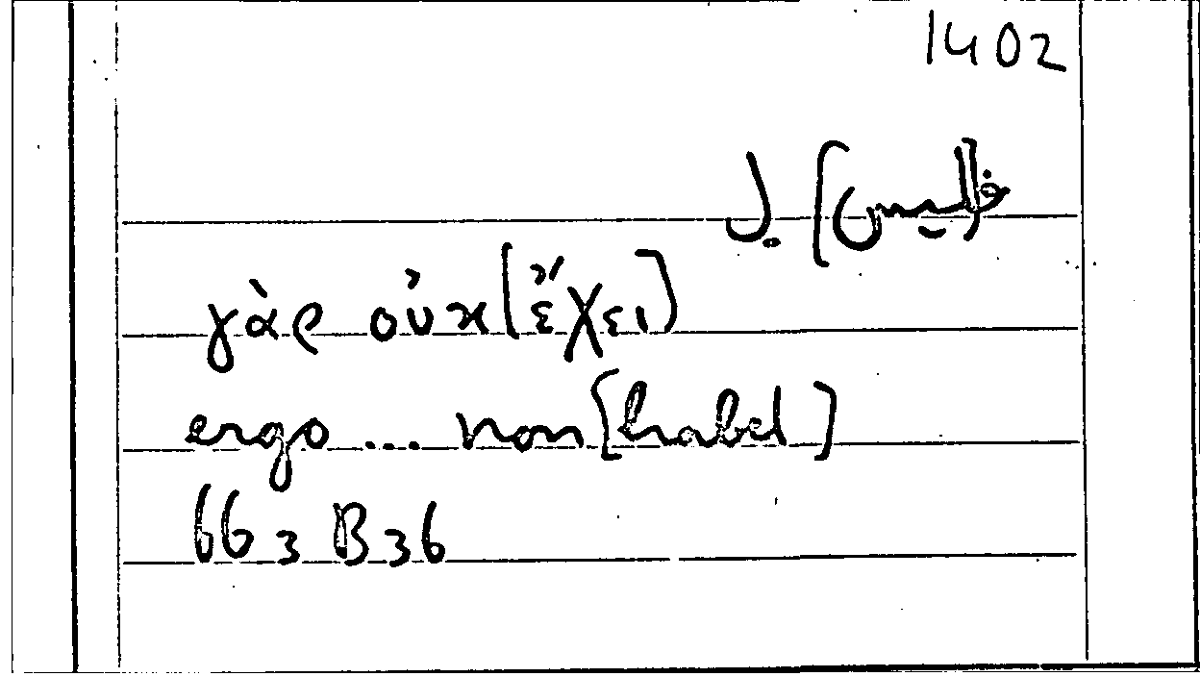 1402
[فليس] ل.
γὰρ οὐκ [ἔχει]
ergo ... non [habet]
663 B36